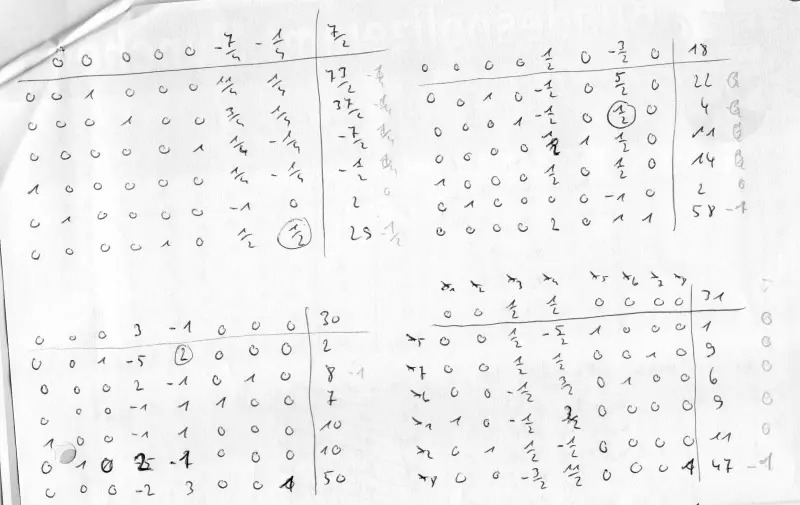 0 0 0 0 0 -7/4 -1/4 | 7/2
0 0 1 0 0 0 11/4 1/4 | 73/2
0 0 0 1 0 0 3/4 1/4 | 37/2
0 0 0 0 0 1 1/4 -1/4 | -7/2
1 0 0 0 0 0 1/4 -1/4 | -1/2
0 1 0 0 0 0 -1 0 | 2
0 0 0 0 1 0 1/2 1/2 | 29 -1/2
0 0 0 0 1/2 0 -3/2 0 | 18
0 0 1 0 -1/2 0 5/2 0 | 22 0
0 0 0 1 -1/2 0 1/2 0 | 4 0
0 0 0 0 1/2 1 1/2 0 | 11 0
1 0 0 0 1/2 0 1/2 0 | 14 0
0 1 0 0 0 0 -1 0 | 2 0
0 0 0 0 2 0 1 1 | 58 -1
0 0 0 3 -1 0 0 0 | 30
0 0 1 -5 2 0 0 0 | 2
0 0 0 2 -1 0 1 0 | 8 -1
0 0 0 -1 1 1 0 0 | 7
1 0 0 -1 1 0 0 0 | 10
0 1 0 2 -1 0 0 0 | 10
0 0 0 -2 3 0 0 1 | 50
x1 x2 x3 x4 x5 x6 x7 x8
0 0 1/2 1/2 0 0 0 0 | 31
x5 0 0 1/2 -5/2 1 0 0 0 | 1 0
x7 0 0 1/2 1/2 0 0 1 0 | 9 0
x6 0 0 -1/2 3/2 0 1 0 0 | 6 0
x1 1 0 -1/2 3/2 0 0 0 0 | 9 0
x2 0 1 1/2 -1/2 0 0 0 0 | 11 0
x8 0 0 -3/2 11/2 0 0 0 1 | 47 -1